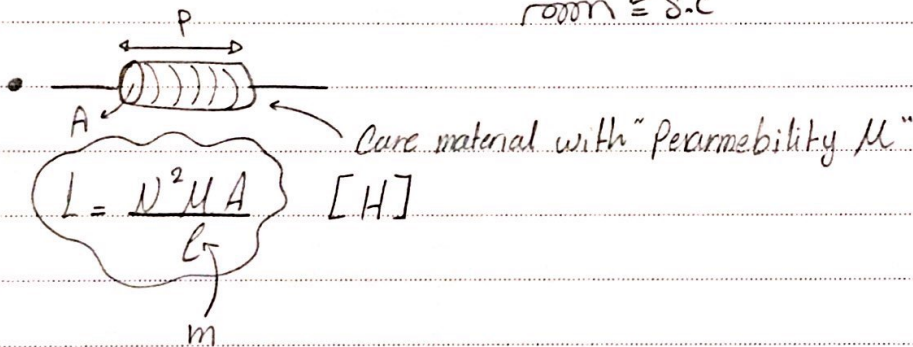 = S.C
P
A
Care material with "Perarmebility M"
L = N²MA / l [H]
m